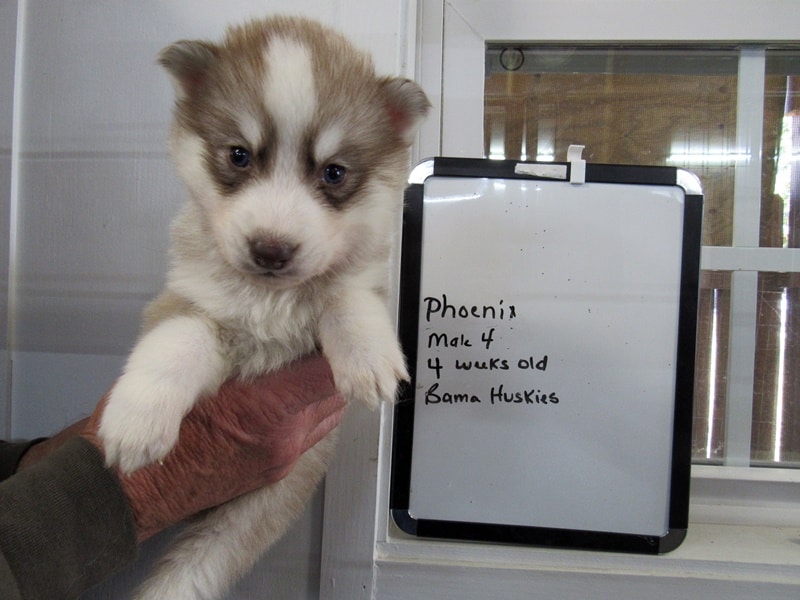 Phoenix
Male 4
4 weeks old
Bama Huskies